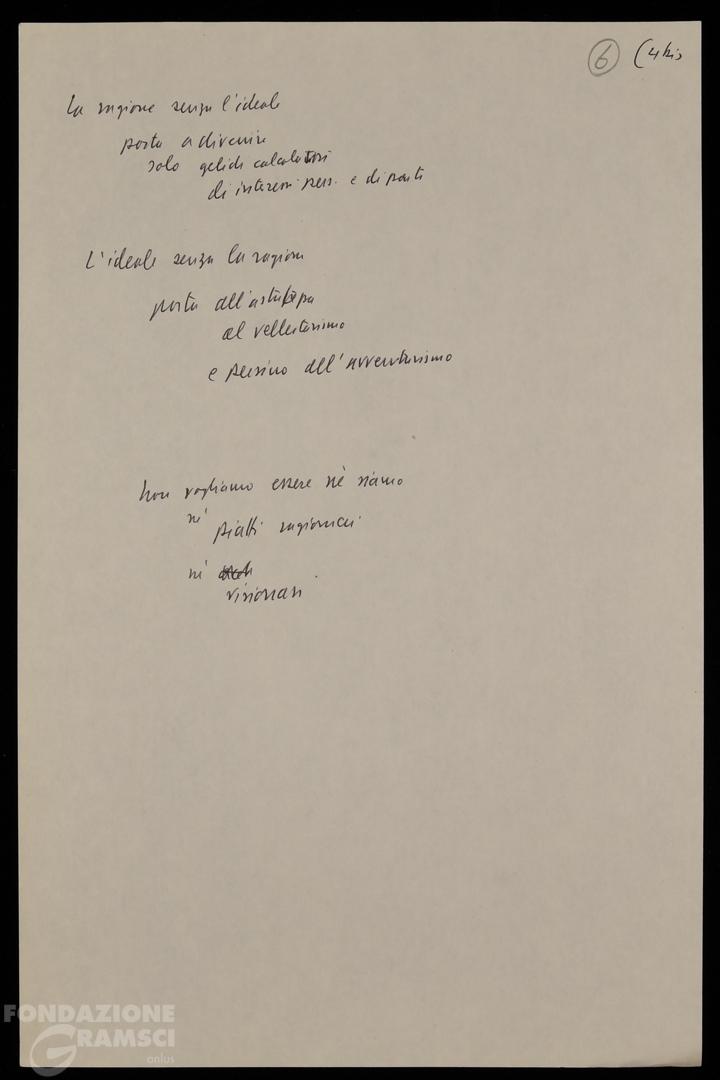 6 (4 bis
La ragione senza l'ideale
porta a divenire
solo gelidi calcolatori
di interessi pers. e di parti
L'ideale senza la ragione
porta all'
al velleitarismo
e persino all'avventurismo
Non vogliamo essere né siamo
né
piatti ragionieri
né
visionari
FONDAZIONE
GRAMSCI
onlus